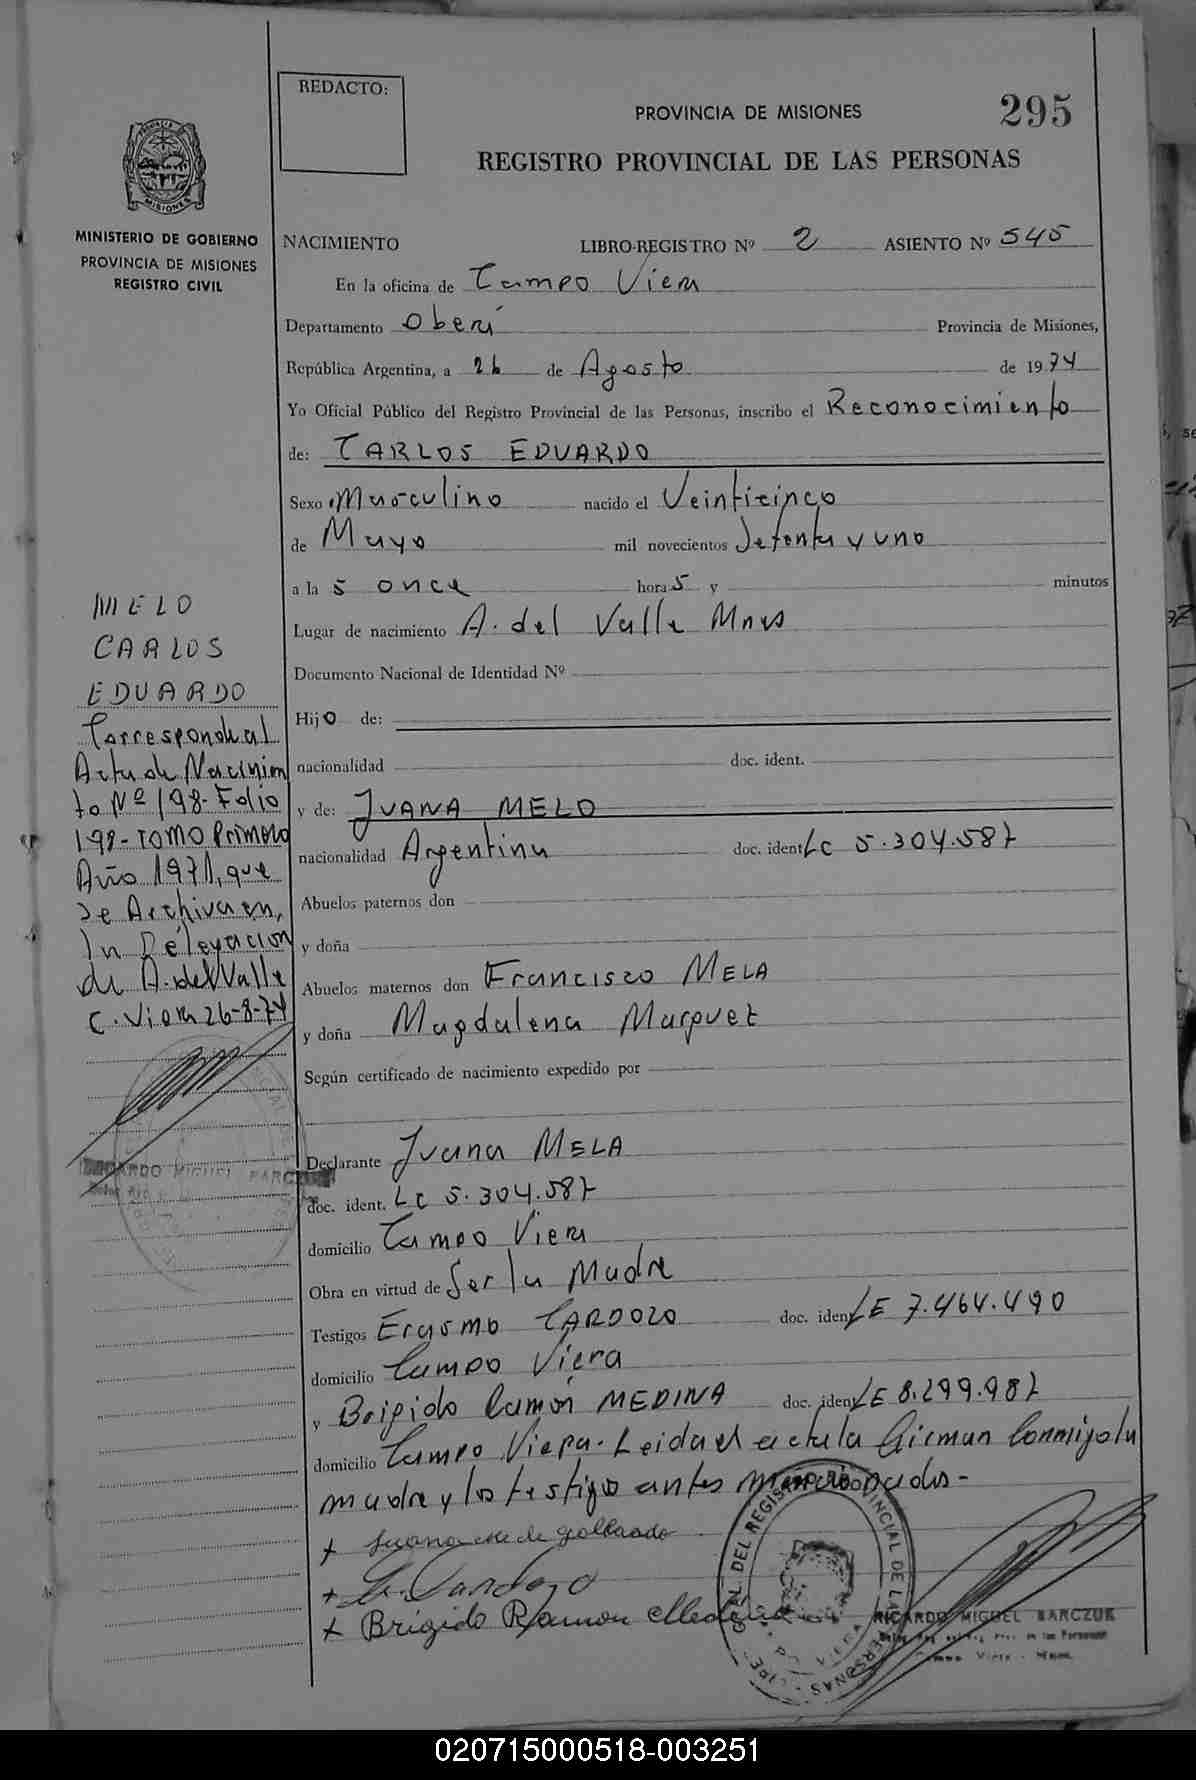 REDACTO:
PROVINCIA DE MISIONES
295
REGISTRO PROVINCIAL DE LAS PERSONAS
MINISTERIO DE GOBIERNO
PROVINCIA DE MISIONES
REGISTRO CIVIL
NACIMIENTO LIBRO-REGISTRO Nº 2 ASIENTO Nº 545
En la oficina de Campo Viera
Departamento Oberá Provincia de Misiones,
República Argentina, a 26 de Agosto de 1974
Yo Oficial Público del Registro Provincial de las Personas, inscribo el Reconocimiento
de: CARLOS EDUARDO
Sexo Masculino nacido el Veinticinco
de Mayo mil novecientos Setenta y uno
a la s once hora s y minutos
Lugar de nacimiento A. del Valle Mnes
Documento Nacional de Identidad Nº
Hijo de:
nacionalidad doc. ident.
y de: JUANA MELO
nacionalidad Argentina doc. ident. LC 5.304.587
Abuelos paternos don
y doña
Abuelos maternos don Francisco MELA
y doña Magdalena Marquez
Según certificado de nacimiento expedido por
Declarante Juana MELA
doc. ident. LC 5.304.587
domicilio Campo Viera
Obra en virtud de Ser la Madre
Testigos Erasmo CARDOZO doc. iden LE 7.464.490
domicilio Campo Viera
y Brigido Ramón MEDINA doc. iden LE 8.299.987
domicilio Campo Viera. Leida el acta la firman Conmigo la
madre y los testigos antes mencionados-
+ Juana de
+ Cardozo
+ Brigido Ramon Medina
MELO
CARLOS
EDUARDO
Corresponde al
Acta de Nacimien
to Nº 198- Folio
198- TOMO Primero
Año 1971, que
se Archiva en,
la Delegacion
de A. del Valle
C. Viera 26-8-74
RICARDO MIGUEL BARCZUK
RICARDO MIGUEL BARCZUK
Campo Viera
020715000518-003251